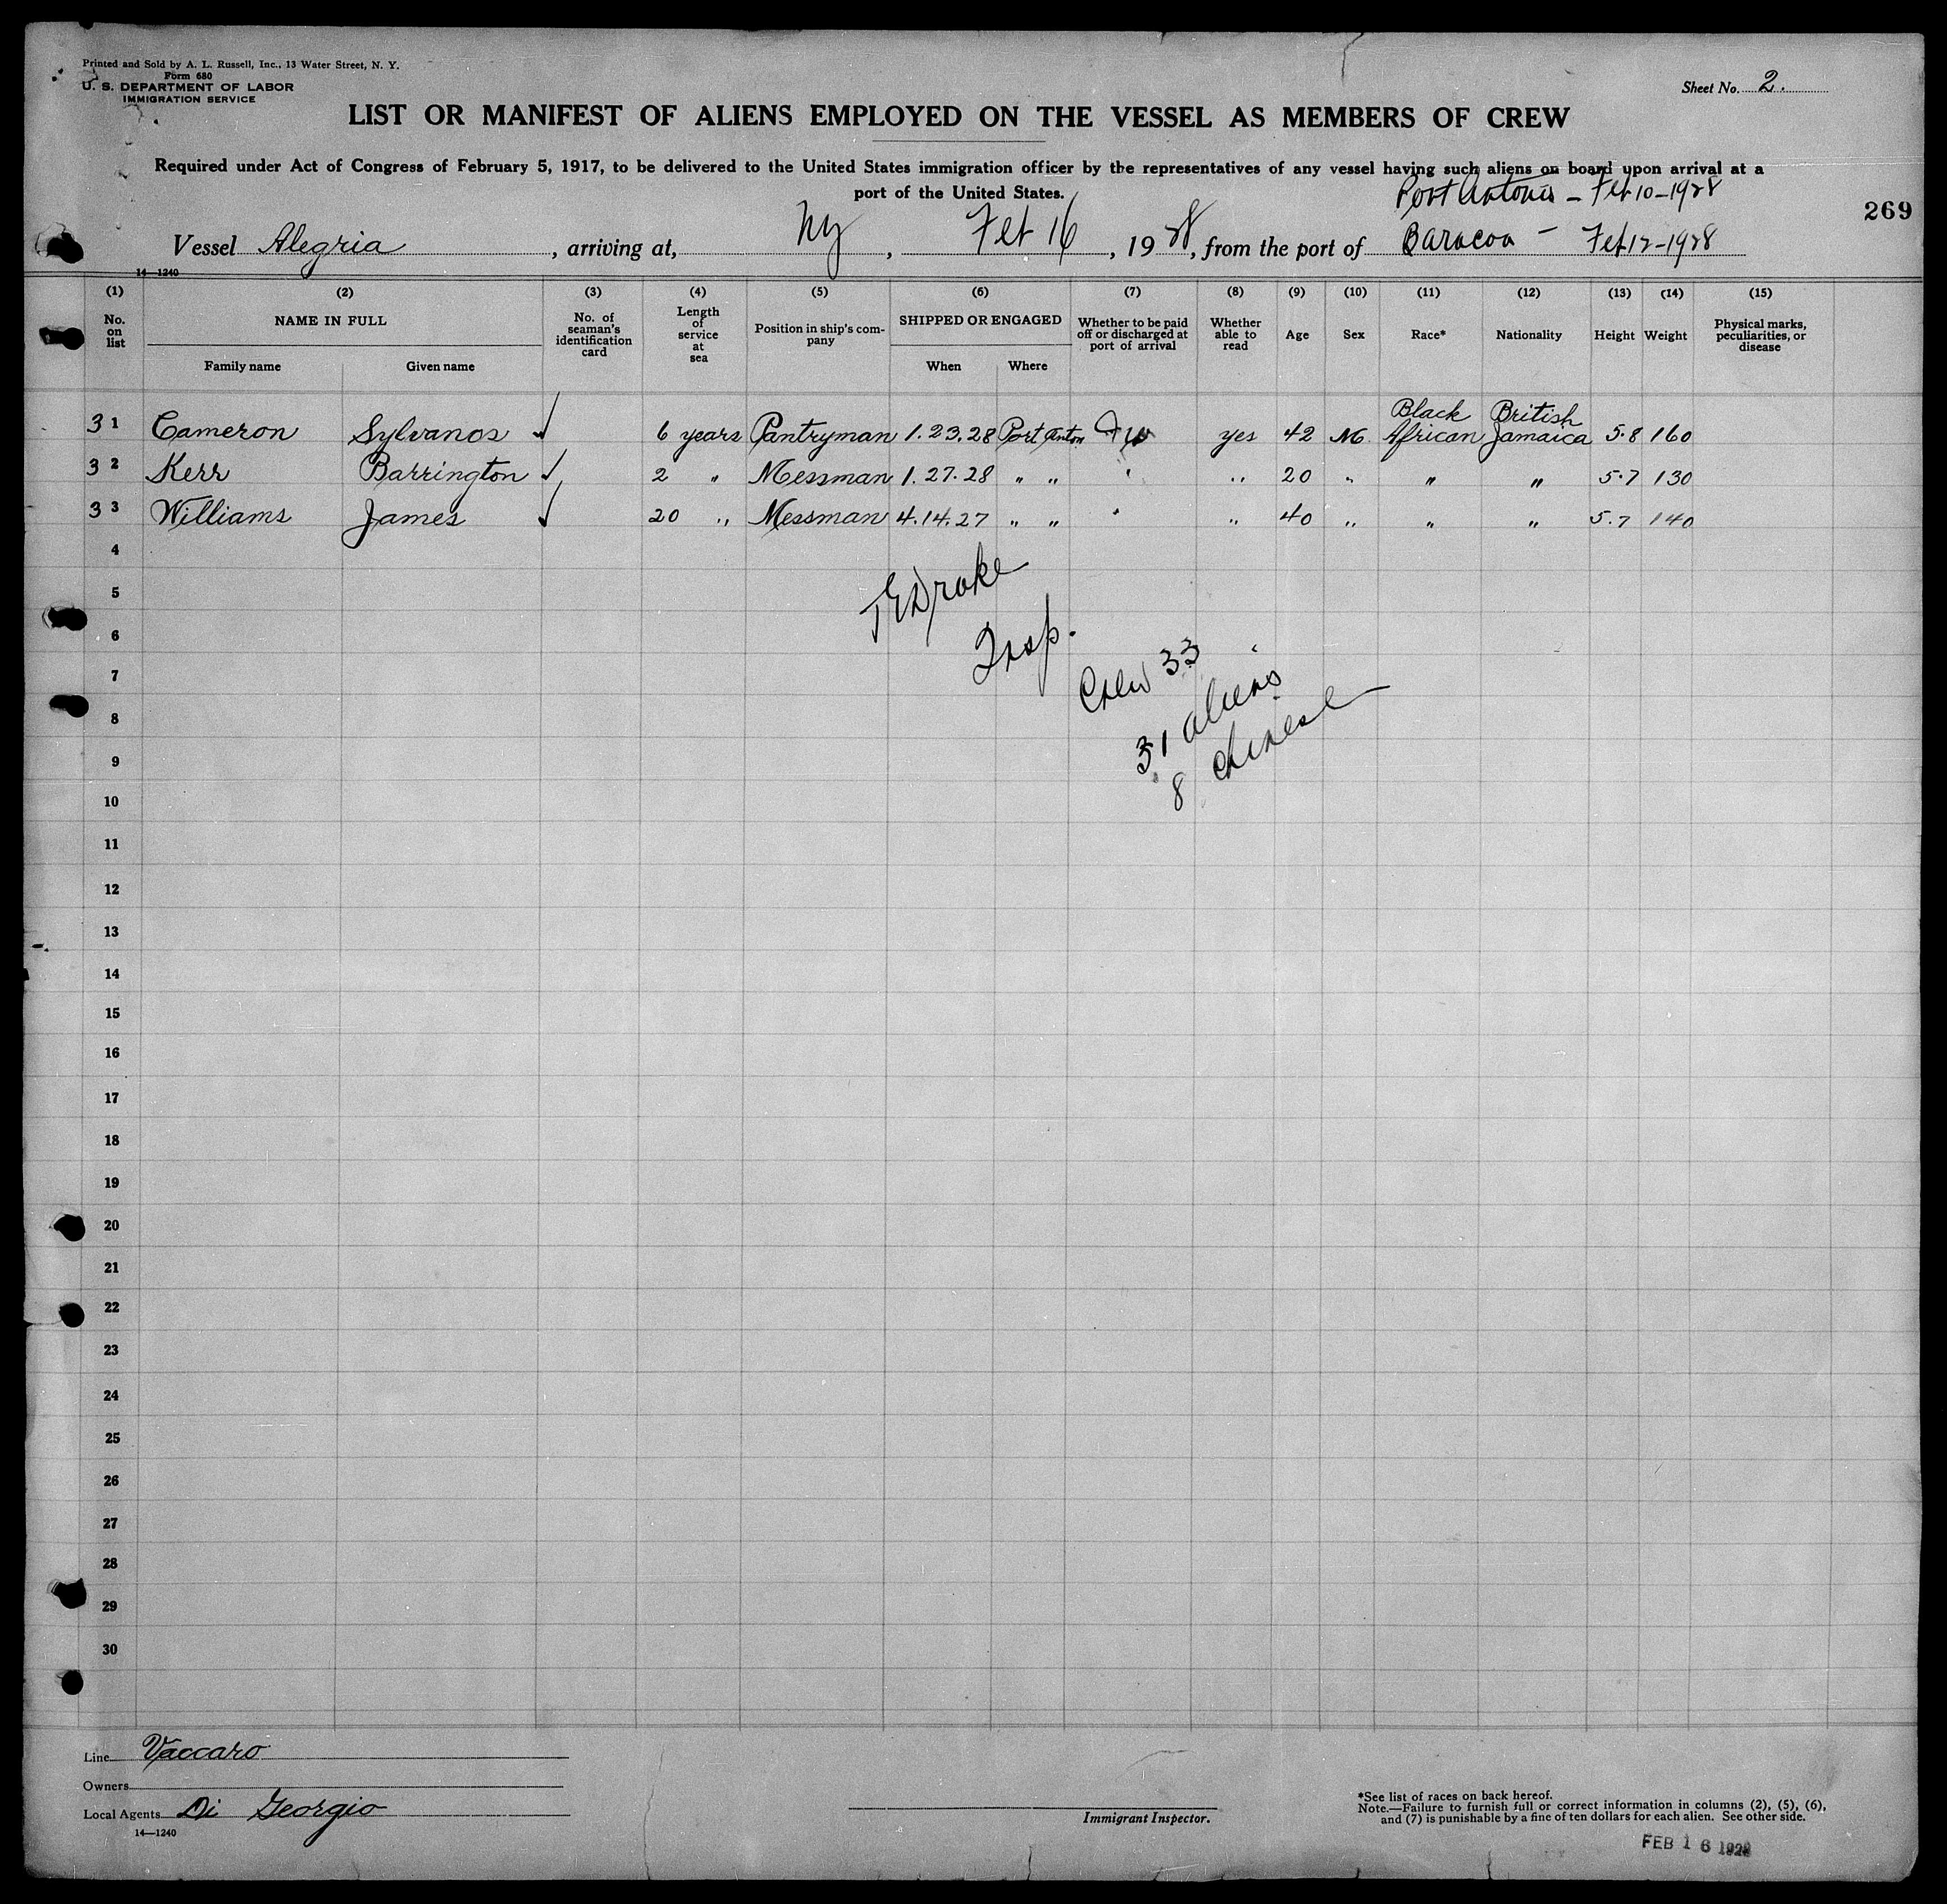 Printed and Sold by A. L. Russell, Inc., 13 Water Street, N. Y.
Form 680
U. S. DEPARTMENT OF LABOR
IMMIGRATION SERVICE
Sheet No. 2.
LIST OR MANIFEST OF ALIENS EMPLOYED ON THE VESSEL AS MEMBERS OF CREW
Required under Act of Congress of February 5, 1917, to be delivered to the United States immigration officer by the representatives of any vessel having such aliens on board upon arrival at a
port of the United States.
Port Antonio - Feb 10-1928
269
Vessel Alegria, arriving at, Ny, Feb 16, 1928, from the port of Baracoa - Feb 12-1928
14—1240
(1) (2) (3) (4) (5) (6) (7) (8) (9) (10) (11) (12) (13) (14) (15)
No. on list
NAME IN FULL
Family name
Given name
No. of seaman's identification card
Length of service at sea
Position in ship's company
SHIPPED OR ENGAGED
When
Where
Whether to be paid off or discharged at port of arrival
Whether able to read
Age
Sex
Race*
Nationality
Height
Weight
Physical marks, peculiarities, or disease
31 Cameron Sylvanos ✓ 6 years Pantryman 1.23.28 Port Anton yes 42 M. Black African British Jamaica 5.8 160
32 Kerr Barrington ✓ 2 " Messman 1.27.28 " " " " 20 " " " 5.7 130
33 Williams James ✓ 20 " Messman 4.14.27 " " " " 40 " " " 5.7 140
4
5
6
7
8
9
10
11
12
13
14
15
16
17
18
19
20
21
22
23
24
25
26
27
28
29
30
Drake
Insp.
Crew 33
31 aliens
8 Chinese
Line Vaccaro
Owners
Local Agents Di Georgio
14—1240
Immigrant Inspector.
*See list of races on back hereof.
Note.—Failure to furnish full or correct information in columns (2), (5), (6),
and (7) is punishable by a fine of ten dollars for each alien. See other side.
FEB 16 1928